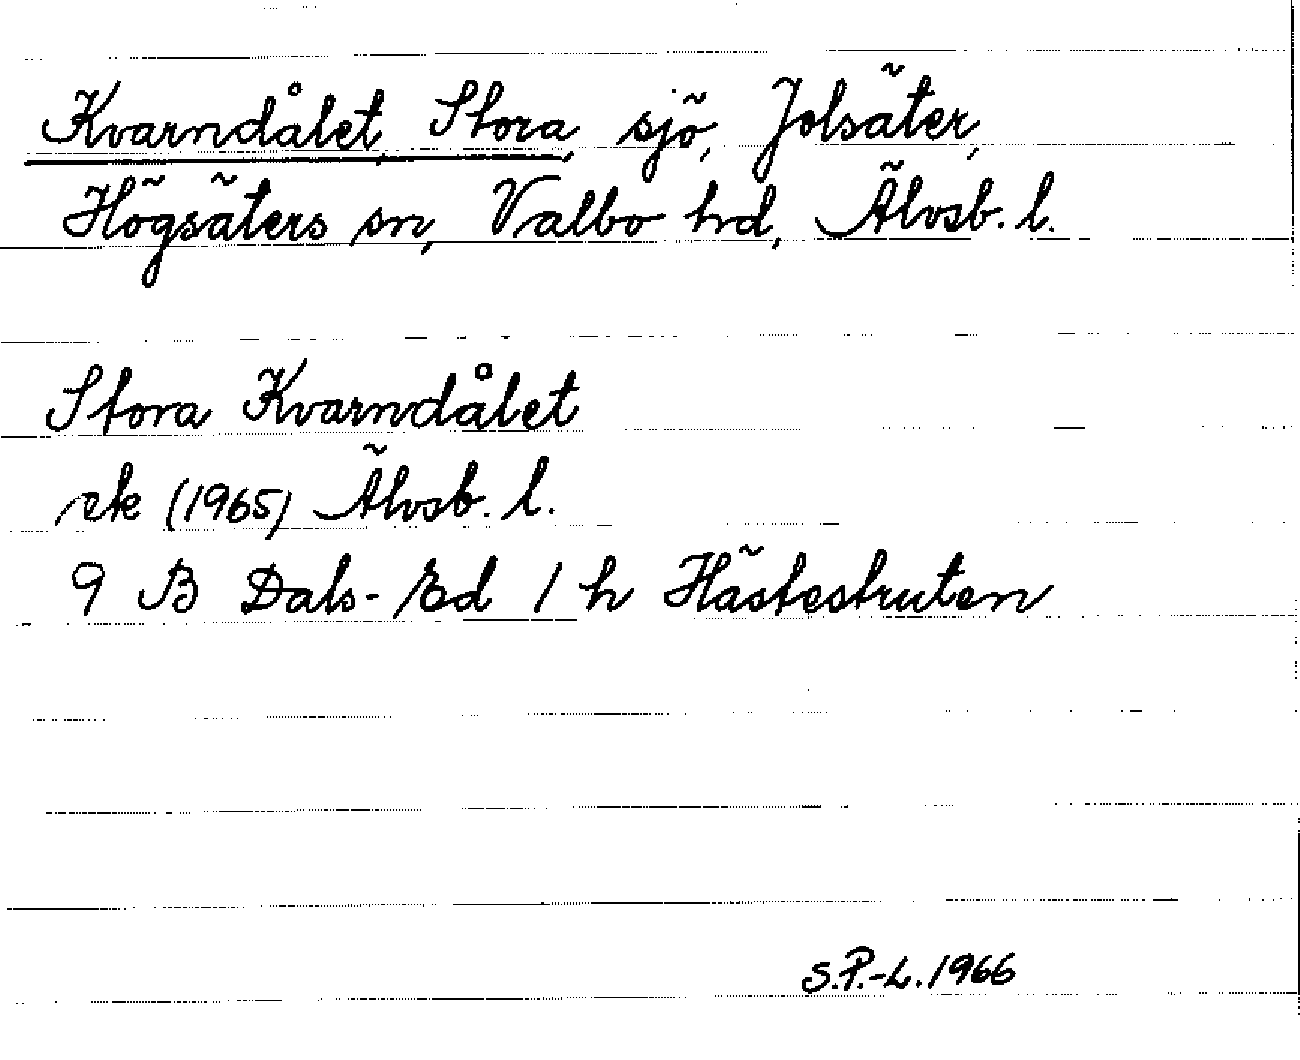 Kvarndålet, Stora, sjö, Jolsäter,
Högsäters sn, Valbo hd, Älvsb. l.
Stora Kvarndålet
ek (1965) Älvsb. l.
9 B Dals-Ed 1 h Hästestruten
S.P.-L. 1966